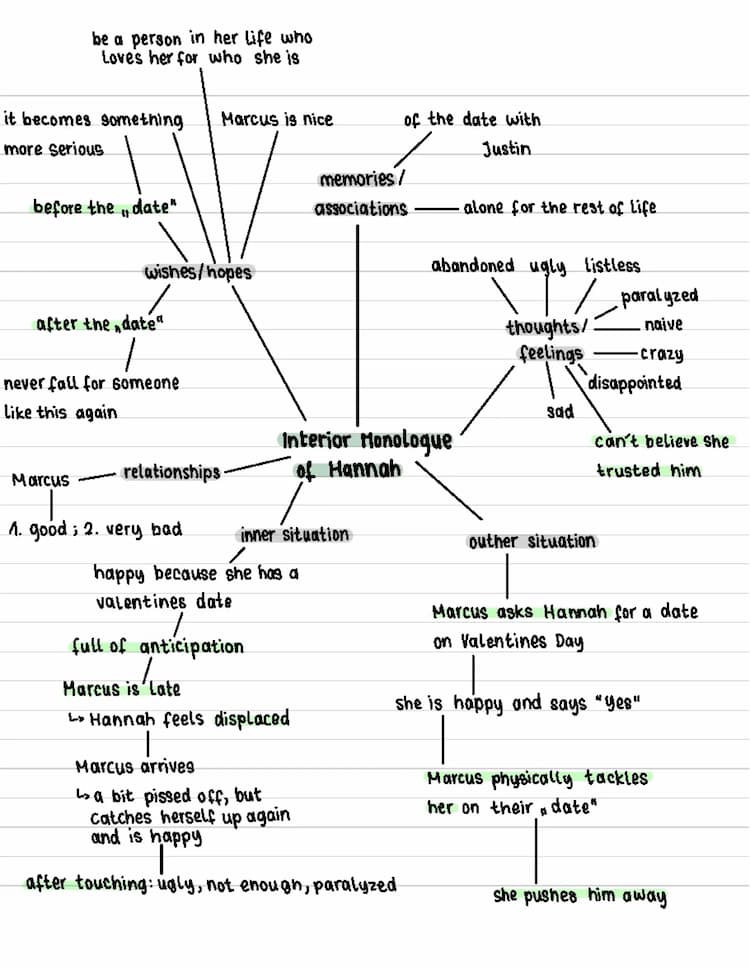 be a person in her life who
loves her for who she is
it becomes something
more serious
Marcus is nice
of the date with
Justin
memories/
associations
alone for the rest of life
before the „date"
wishes/hopes
after the „date"
never fall for someone
like this again
abandoned
ugly
listless
paralyzed
thoughts/
feelings
naive
crazy
disappointed
sad
can't believe she
trusted him
Interior Monologue
of Hannah
Marcus
relationships
1. good ; 2. very bad
inner situation
happy because she has a
valentines date
full of anticipation
Marcus is late
↳ Hannah feels displaced
Marcus arrives
↳ a bit pissed off, but
catches herself up again
and is happy
after touching: ugly, not enough, paralyzed
outher situation
Marcus asks Hannah for a date
on Valentines Day
she is happy and says "yes"
Marcus physically tackles
her on their „date"
she pushes him away